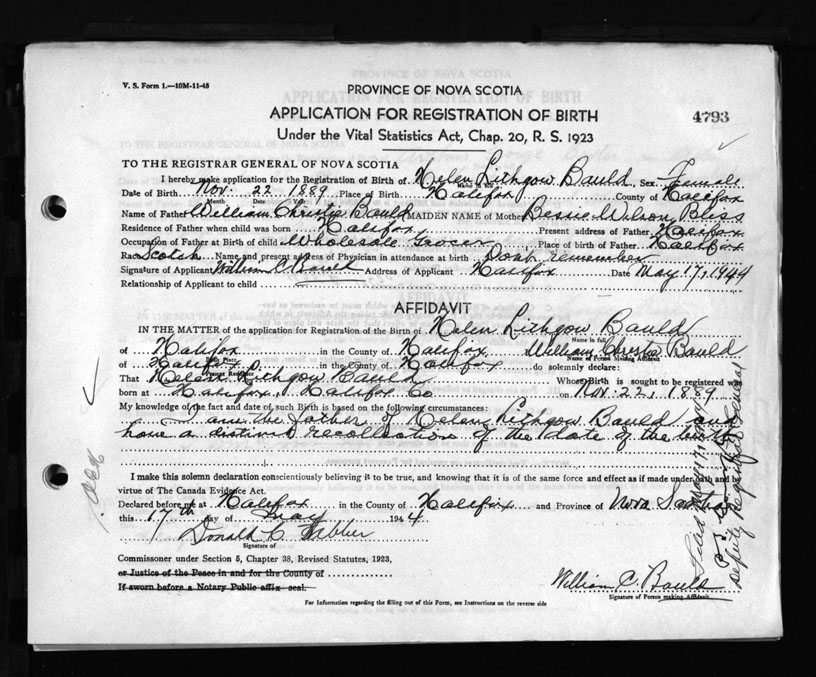 V. S. Form 1.—10M-11-43
PROVINCE OF NOVA SCOTIA
APPLICATION FOR REGISTRATION OF BIRTH
4793
Under the Vital Statistics Act, Chap. 20, R. S. 1923
TO THE REGISTRAR GENERAL OF NOVA SCOTIA
I hereby make application for the Registration of Birth of Helen Lithgow Bauld Sex Female
Date of Birth Nov. 22 1889 Place of Birth Halifax County of Halifax
Month Date Year
Name of Father William Christie Bauld MAIDEN NAME of Mother Bessie Wilson Bliss
Residence of Father when child was born Halifax Present address of Father Halifax
Occupation of Father at Birth of child Wholesale Grocer Place of Birth of Father Halifax
Race Scotch Name and present address of Physician in attendance at birth Don't remember
Signature of Applicant William C Bauld Address of Applicant Halifax Date May 17, 1944
Relationship of Applicant to child
AFFIDAVIT
IN THE MATTER of the application for Registration of the Birth of Helen Lithgow Bauld
Name in full
of Halifax in the County of Halifax William Christie Bauld
Birth Place Name of Person Making Affidavit
of Halifax in the County of Halifax do solemnly declare:
Present Residence
That Helen Lithgow Bauld Whose Birth is sought to be registered was
born at Halifax, Halifax Co on Nov. 22, 1889
My knowledge of the fact and date of such Birth is based on the following circumstances:
I am the father of Helen Lithgow Bauld and
have a distinct recollection of the date of the birth
I make this solemn declaration conscientiously believing it to be true, and knowing that it is of the same force and effect as if made under oath and by
virtue of The Canada Evidence Act.
Declared before me at Halifax in the County of Halifax and Province of Nova Scotia
this 17th day of May 1944
Donald C Webber
Signature of
Commissoner under Section 5, Chapter 38, Revised Statutes, 1923,
or Justice of the Peace in and for the County of
If sworn before a Notary Public affix seal.
William C. Bauld
Signature of Person making Affidavit
For Information regarding the filling out of this Form, see Instructions on the reverse side
Filed May 17, 1944
Deputy Registrar General